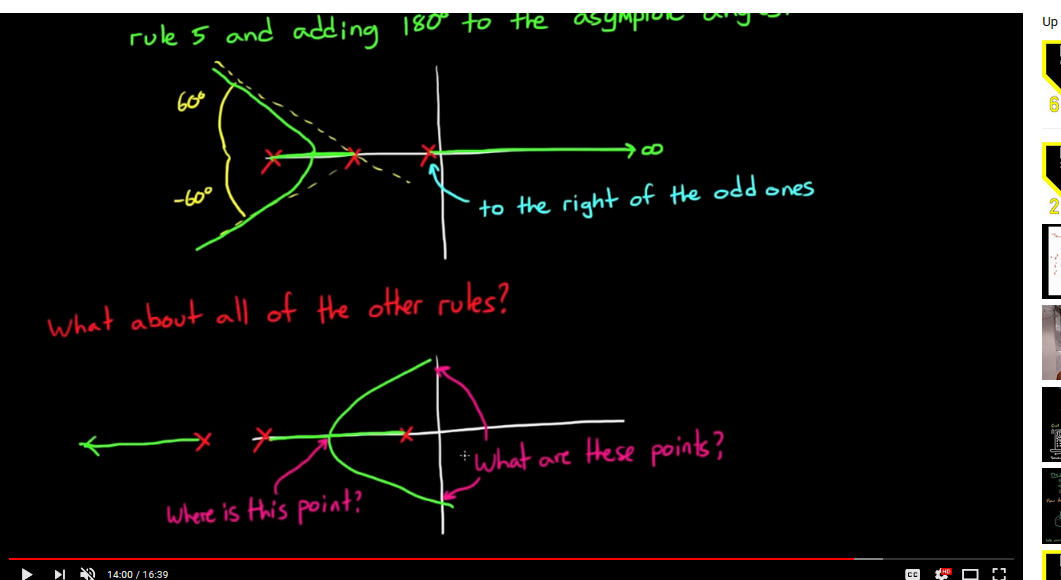 rule 5 and adding 180° to the asymptotic angles.
60°
∞
-60°
to the right of the odd ones
What about all of the other rules?
What are these points?
Where is this point?
14:00 / 16:39
CC
HD
Up
6
2